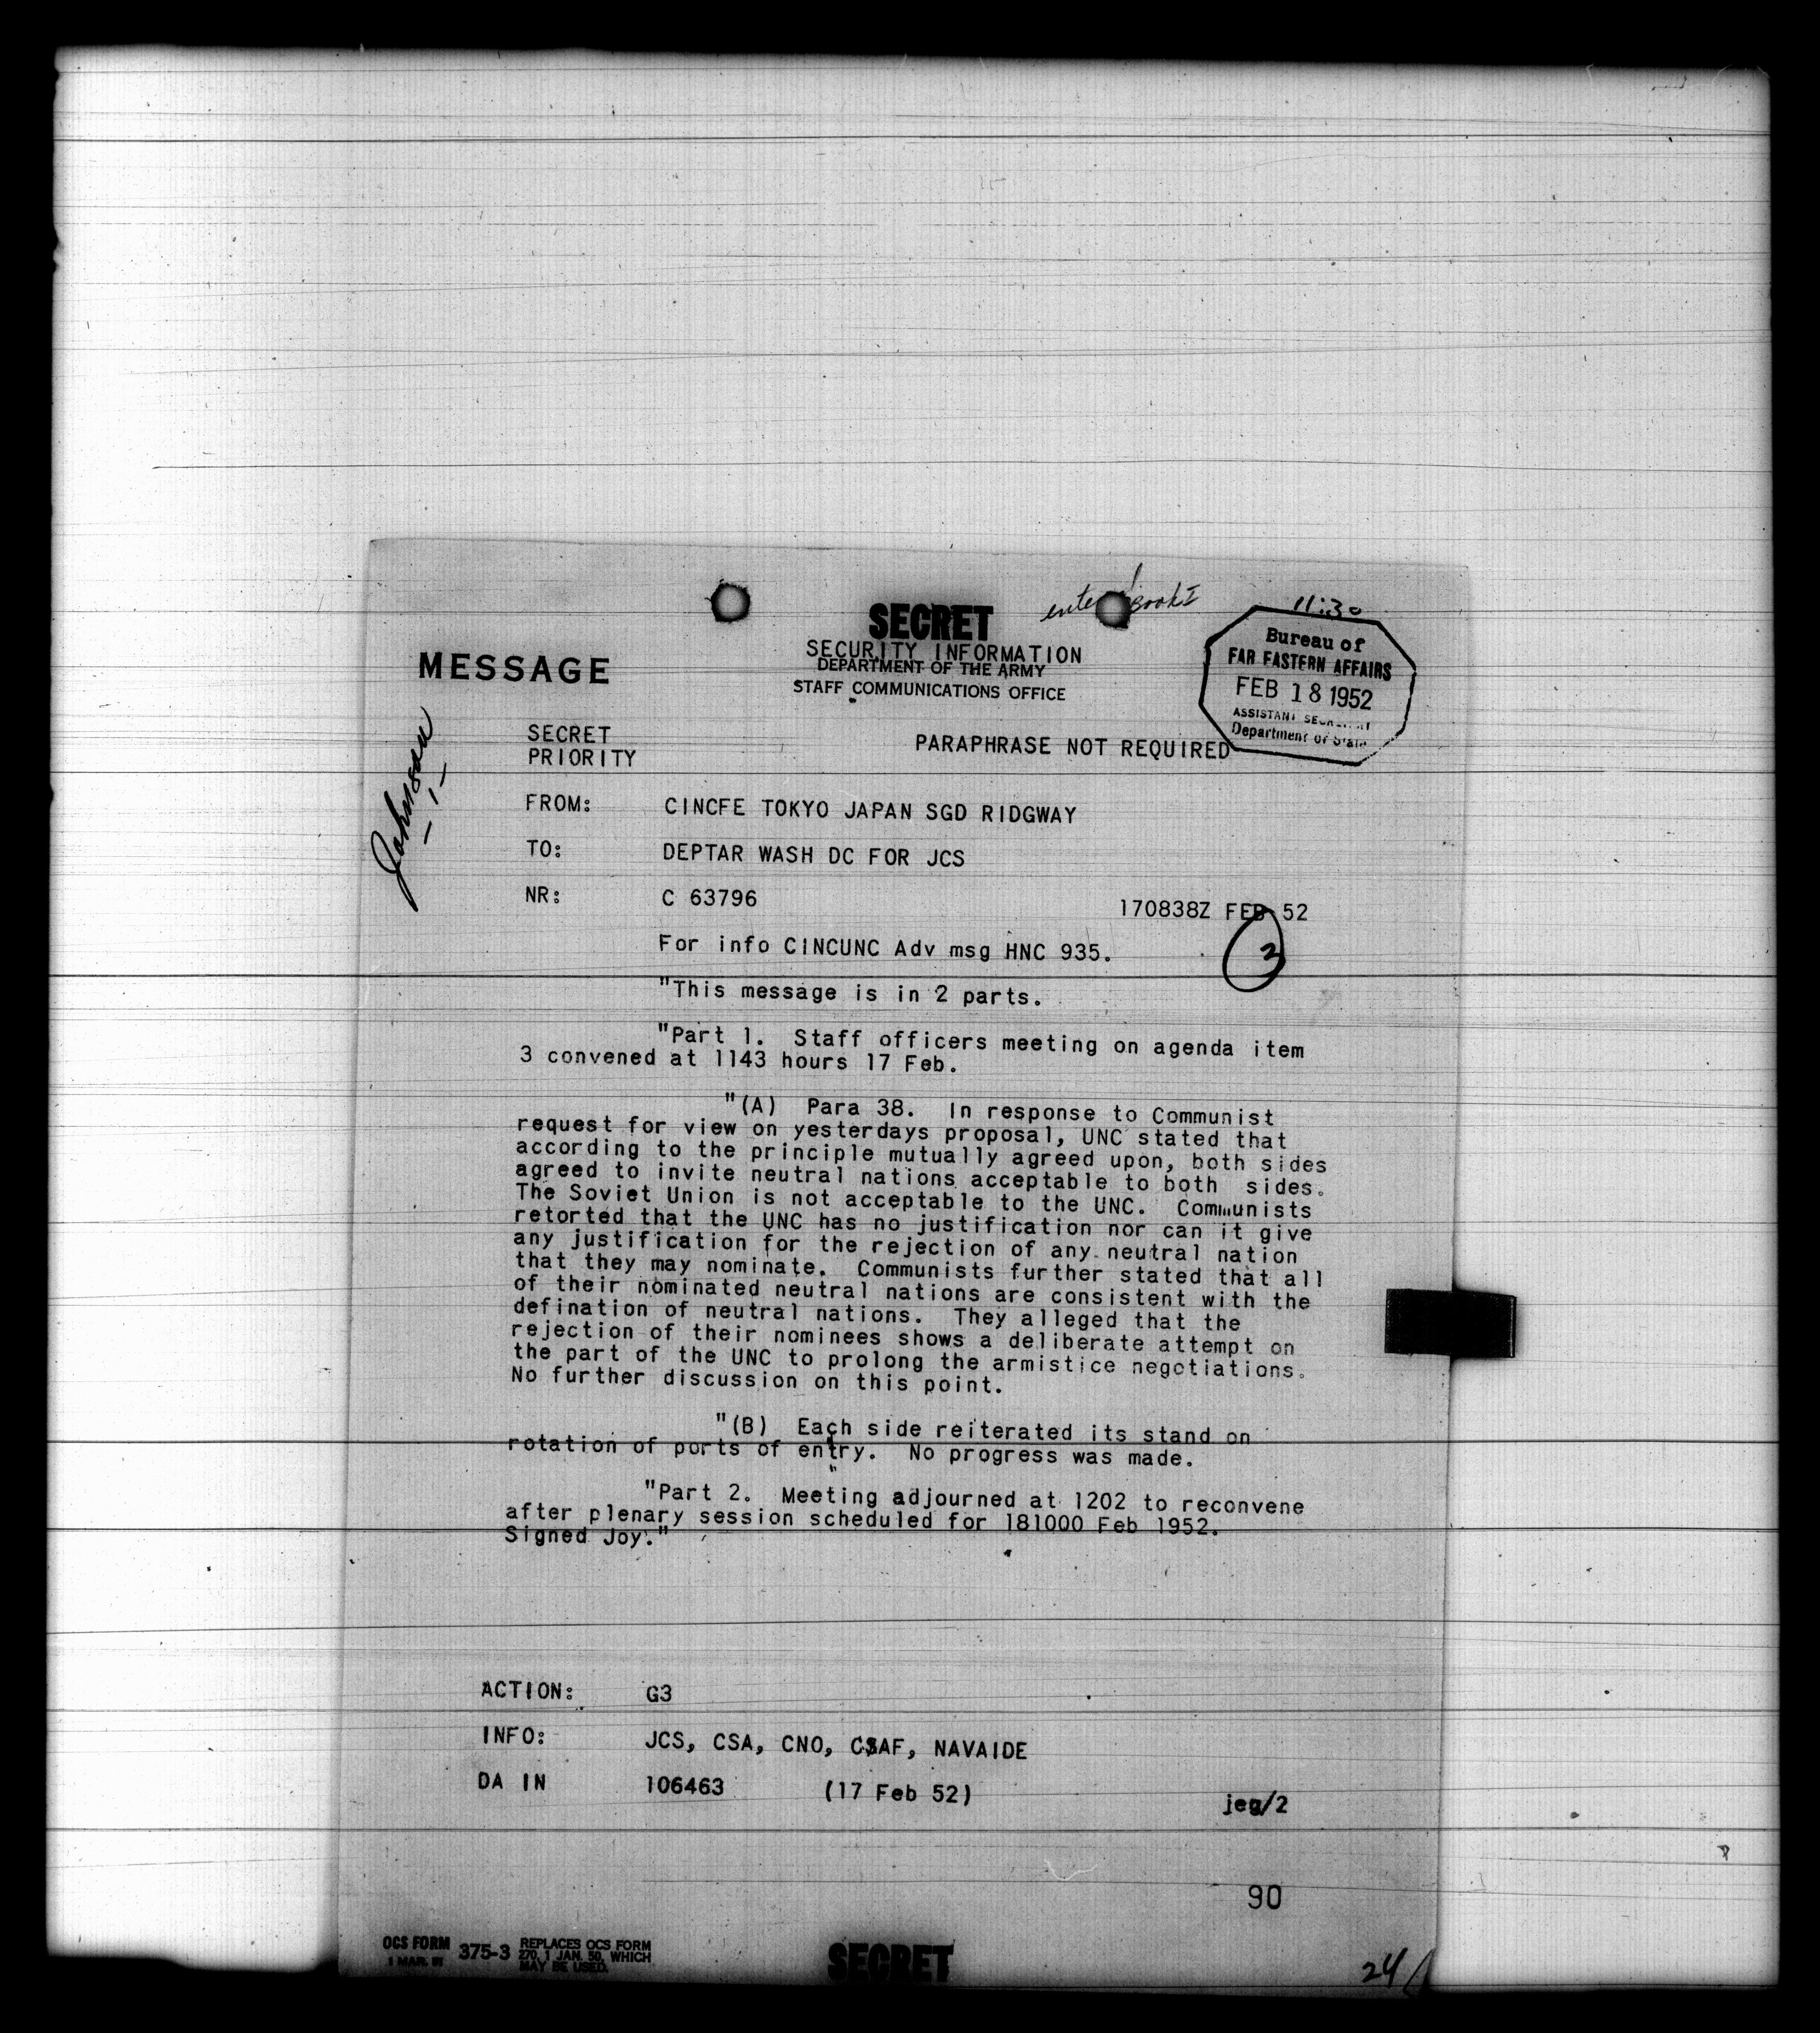 11:30
SECRET
SECURITY INFORMATION
DEPARTMENT OF THE ARMY
STAFF COMMUNICATIONS OFFICE
MESSAGE
Bureau of
FAR EASTERN AFFAIRS
FEB 18 1952
ASSISTANT
Department of State
Johnson
SECRET
PRIORITY
PARAPHRASE NOT REQUIRED
FROM: CINCFE TOKYO JAPAN SGD RIDGWAY
TO: DEPTAR WASH DC FOR JCS
NR: C 63796 170838Z FEB 52
3
For info CINCUNC Adv msg HNC 935.
"This message is in 2 parts.
"Part 1. Staff officers meeting on agenda item
3 convened at 1143 hours 17 Feb.
"(A) Para 38. In response to Communist
request for view on yesterdays proposal, UNC stated that
according to the principle mutually agreed upon, both sides
agreed to invite neutral nations acceptable to both sides.
The Soviet Union is not acceptable to the UNC. Communists
retorted that the UNC has no justification nor can it give
any justification for the rejection of any neutral nation
that they may nominate. Communists further stated that all
of their nominated neutral nations are consistent with the
defination of neutral nations. They alleged that the
rejection of their nominees shows a deliberate attempt on
the part of the UNC to prolong the armistice negotiations.
No further discussion on this point.
"(B) Each side reiterated its stand on
rotation of ports of entry. No progress was made.
"Part 2. Meeting adjourned at 1202 to reconvene
after plenary session scheduled for 181000 Feb 1952.
Signed Joy."
ACTION: G3
INFO: JCS, CSA, CNO, CSAF, NAVAIDE
DA IN 106463 (17 Feb 52) jeg/2
90
OCS FORM 375-3 REPLACES OCS FORM
1 MAR. 51 270, 1 JAN. 50, WHICH
MAY BE USED.
SECRET
24